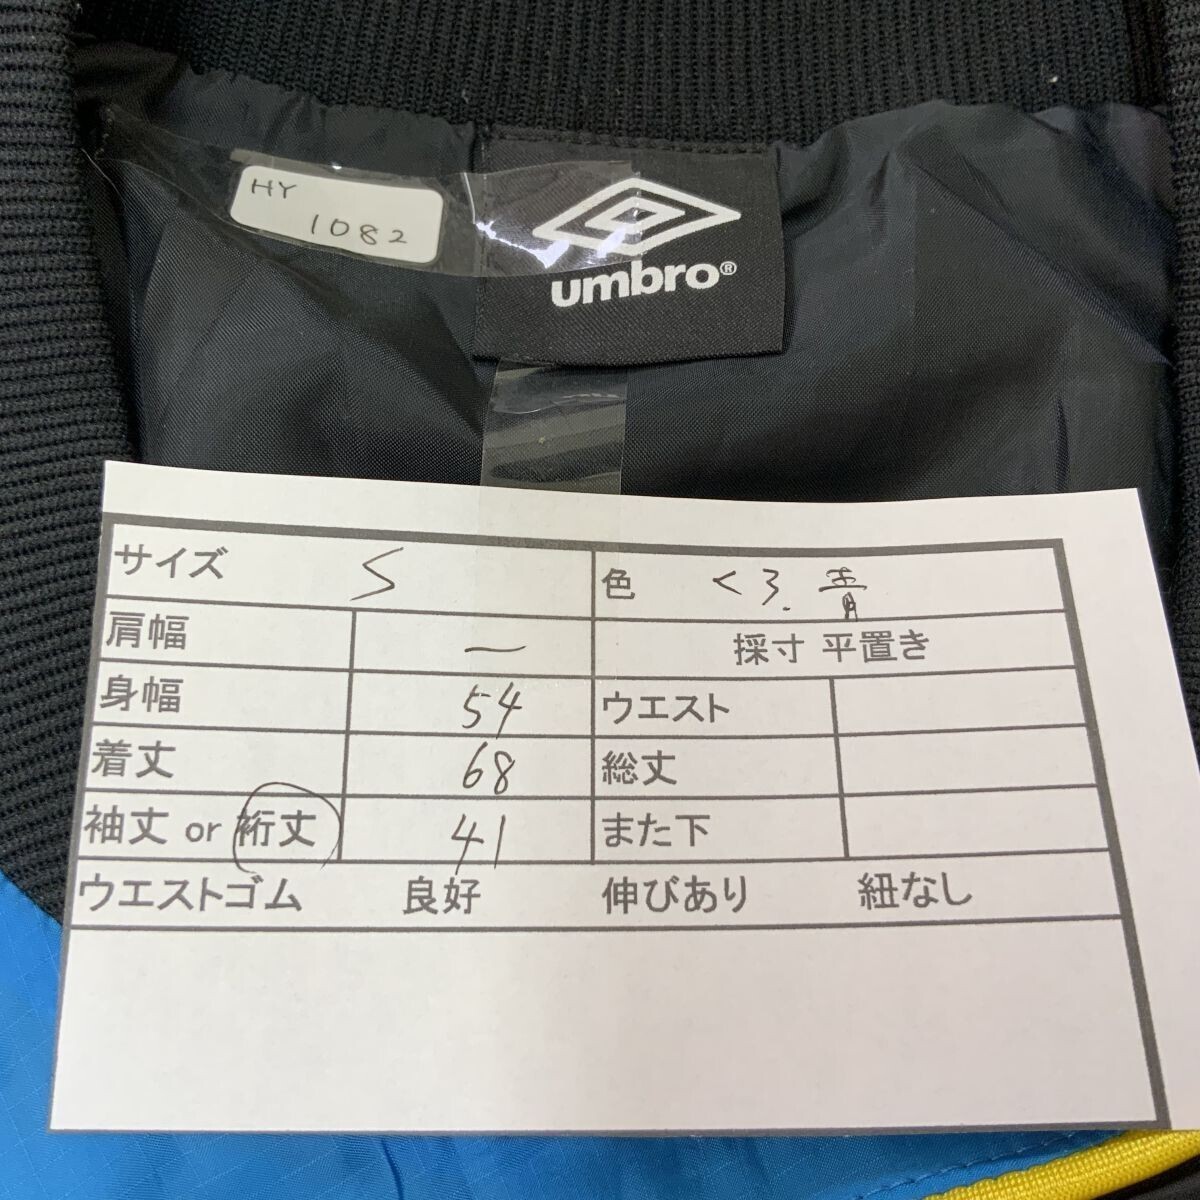 HY
1082
umbro®
サイズ S 色 くろ. 青
肩幅 ー 採寸 平置き
身幅 54 ウエスト
着丈 68 総丈
袖丈 or 裄丈 41 また下
ウエストゴム 良好 伸びあり 紐なし